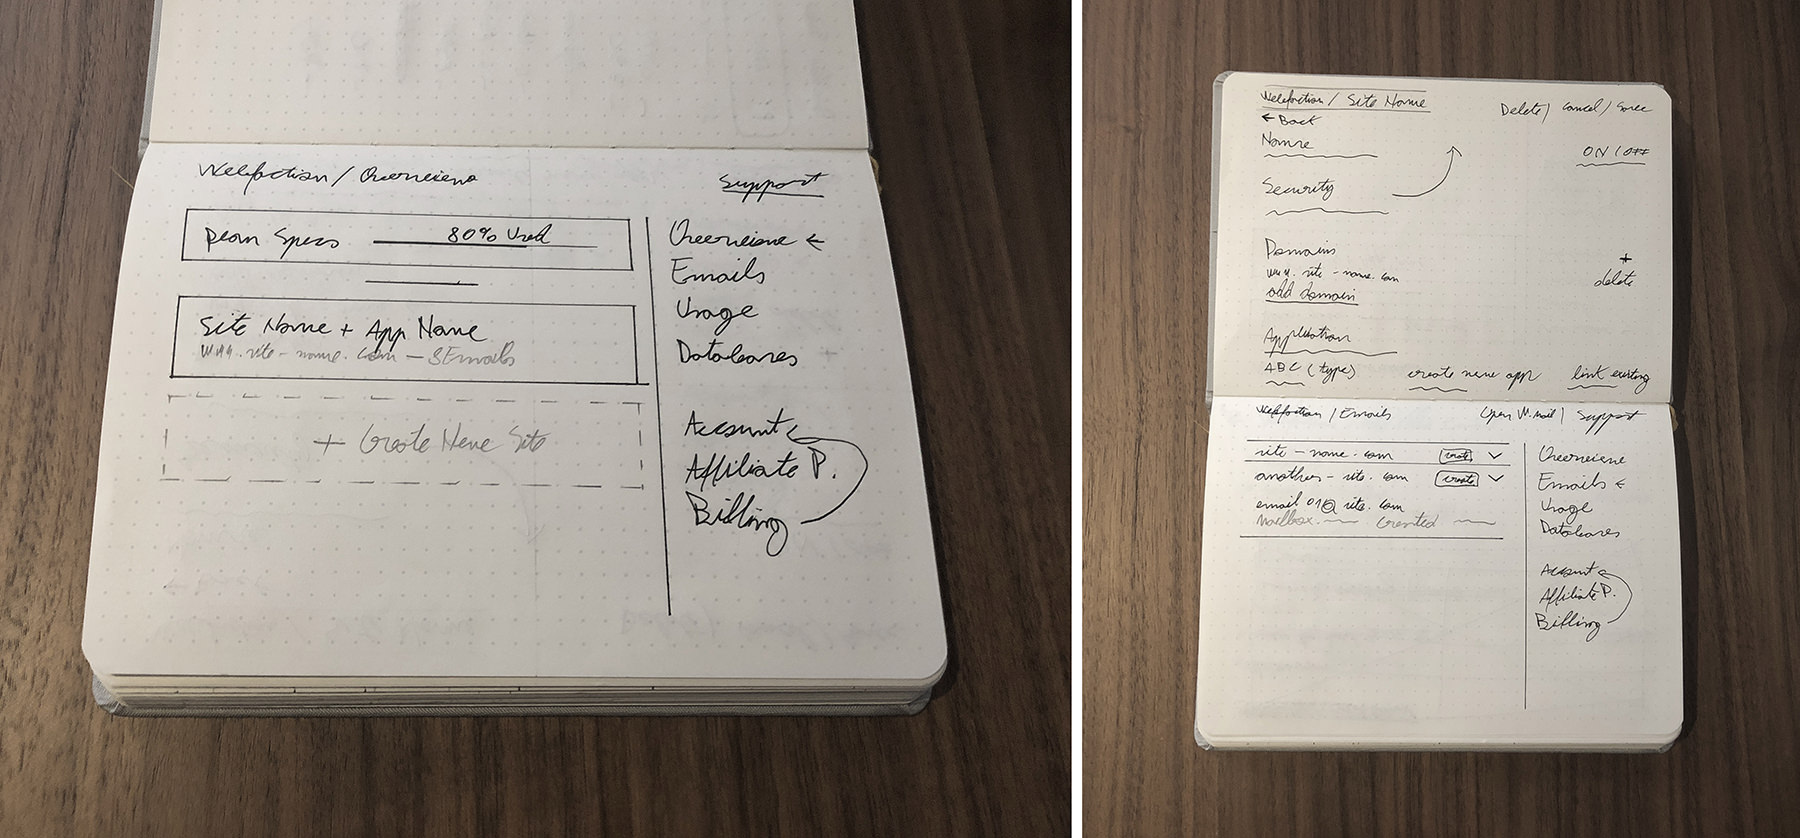 Webfaction / Overview
Support
Plan Specs 80% Used
Site Name + App Name
www.site-name.com - 3 Emails
+ Create New Site
Overview ←
Emails
Usage
Databases
Account
Affiliate P.
Billing
Webfaction / Site Name
Delete / Cancel / Save
← Back
Name
ON / OFF
Security
Domains
www.site-name.com
add domain
+
delete
Application
ABC (type) create new app link existing
Webfaction / Emails
Open W.mail | Support
site-name.com create
another-site.com create
email01@site.com
Mailbox Created
Overview
Emails ←
Usage
Databases
Account
Affiliate P.
Billing